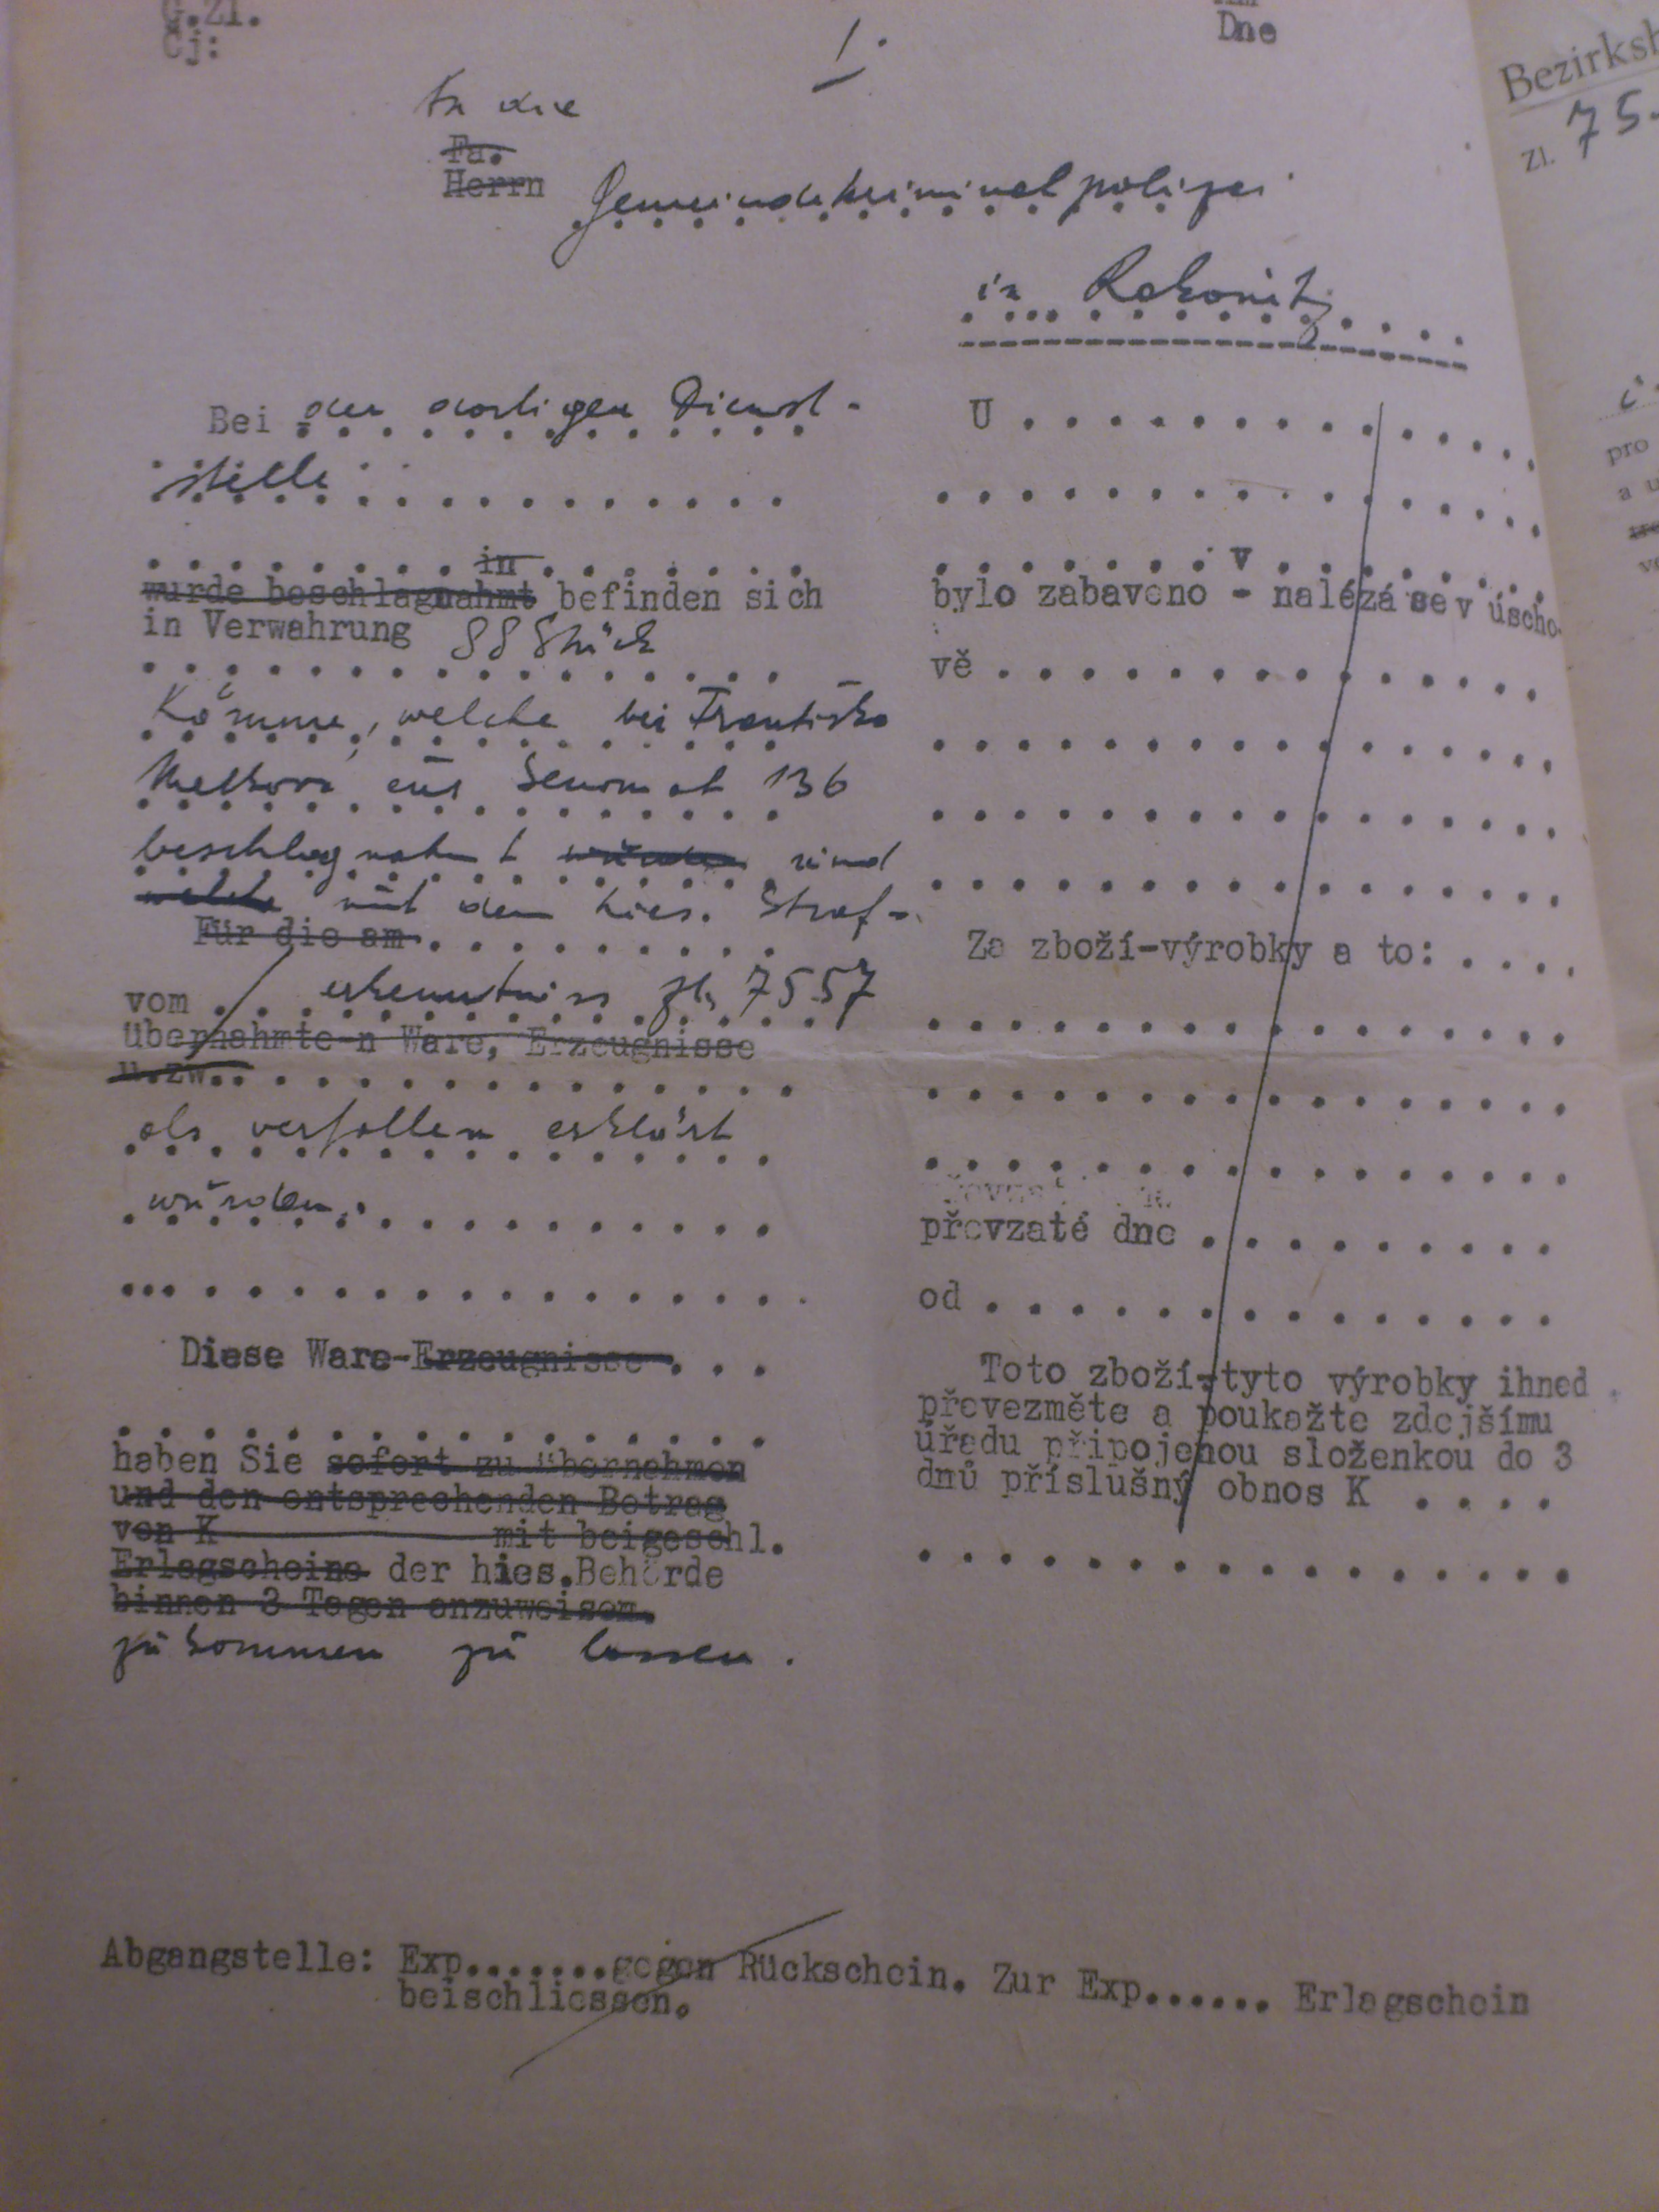 G.Zl.
Čj:
Dne
1.
An die
Fa.
Herrn
Gemeindekriminalpolizei
in Rakonitz
Bei der dortigen Dienst-
stelle
in
wurde beschlagnahmt befinden sich
in Verwahrung 88 Stück
Kämme, welche bei Františka
aus Senomat 136
beschlagnahmt wurden sind
welche mit dem hies. Straf-
Für die am
vom erkenntniss Zl. 7557
übernahmte-n Ware, Erzeugnisse
u.zw.
als verfallen erklärt
wurden.
Diese Ware-Erzeugnisse
haben Sie sofort zu übernehmen
und den entsprechenden Betrag
von K mit beigeschl.
Erlagscheine der hies.Behörde
binnen 3 Tagen anzuweisen.
zukommen zu lassen.
U
v
bylo zabaveno - nalézá se v úscho-
vě
Za zboží-výrobky a to:
převzaté dne
od
Toto zboží-tyto výrobky ihned
převezměte a poukažte zdejšímu
úřadu připojenou složenkou do 3
dnů příslušný obnos K
Abgangstelle: Exp.......gegen Rückschein. Zur Exp...... Erlagschein
beischliessen.
Bezirksh
Zl. 75
pro
a u